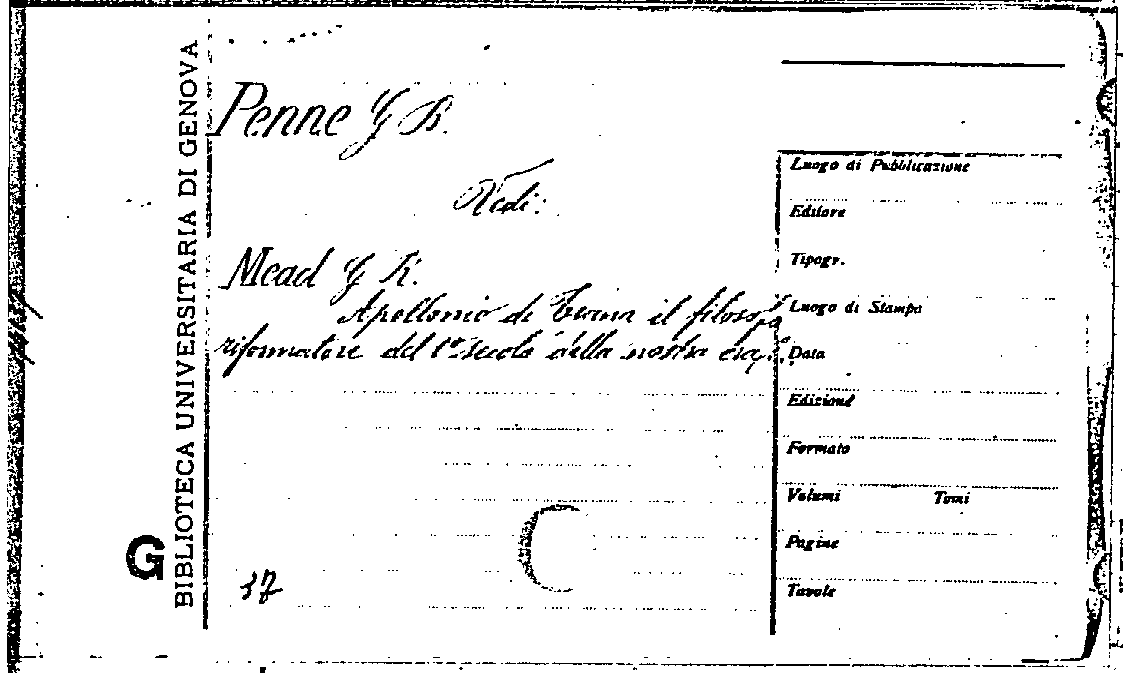 BIBLIOTECA UNIVERSITARIA DI GENOVA
G
Penne G B.
Vedi:
Mead G R.
Apollonio di Tiana il filosofo
riformatore del 1º secolo della nostra era.
17
Luogo di Pubblicazione
Editore
Tipogr.
Luogo di Stampa
Data
Edizione
Formato
Volumi Tomi
Pagine
Tavole